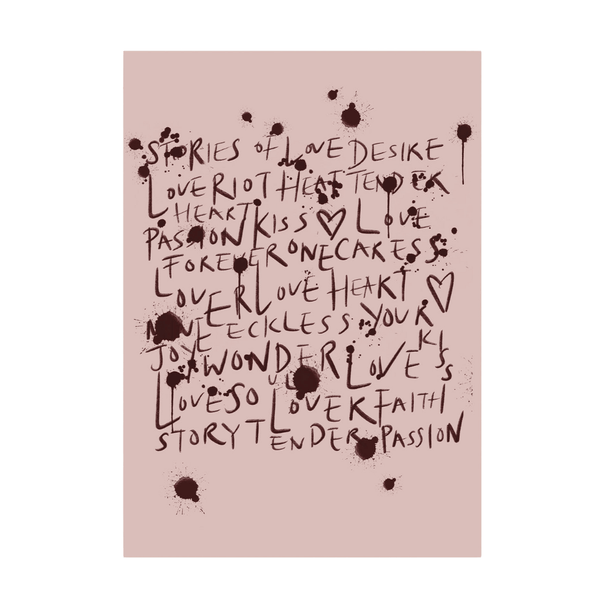 STORIES of LOVE DESIRE
LOVE RIOT HEAT TENDER
HEART KISS ♡ LOVE
PASSION FOREVER ONE CARESS
LOVER LOVE HEART ♡
RECKLESS YOUR
JOY WONDER LOVE KISS
LOVE SOUL LOVER FAITH
STORY TENDER PASSION